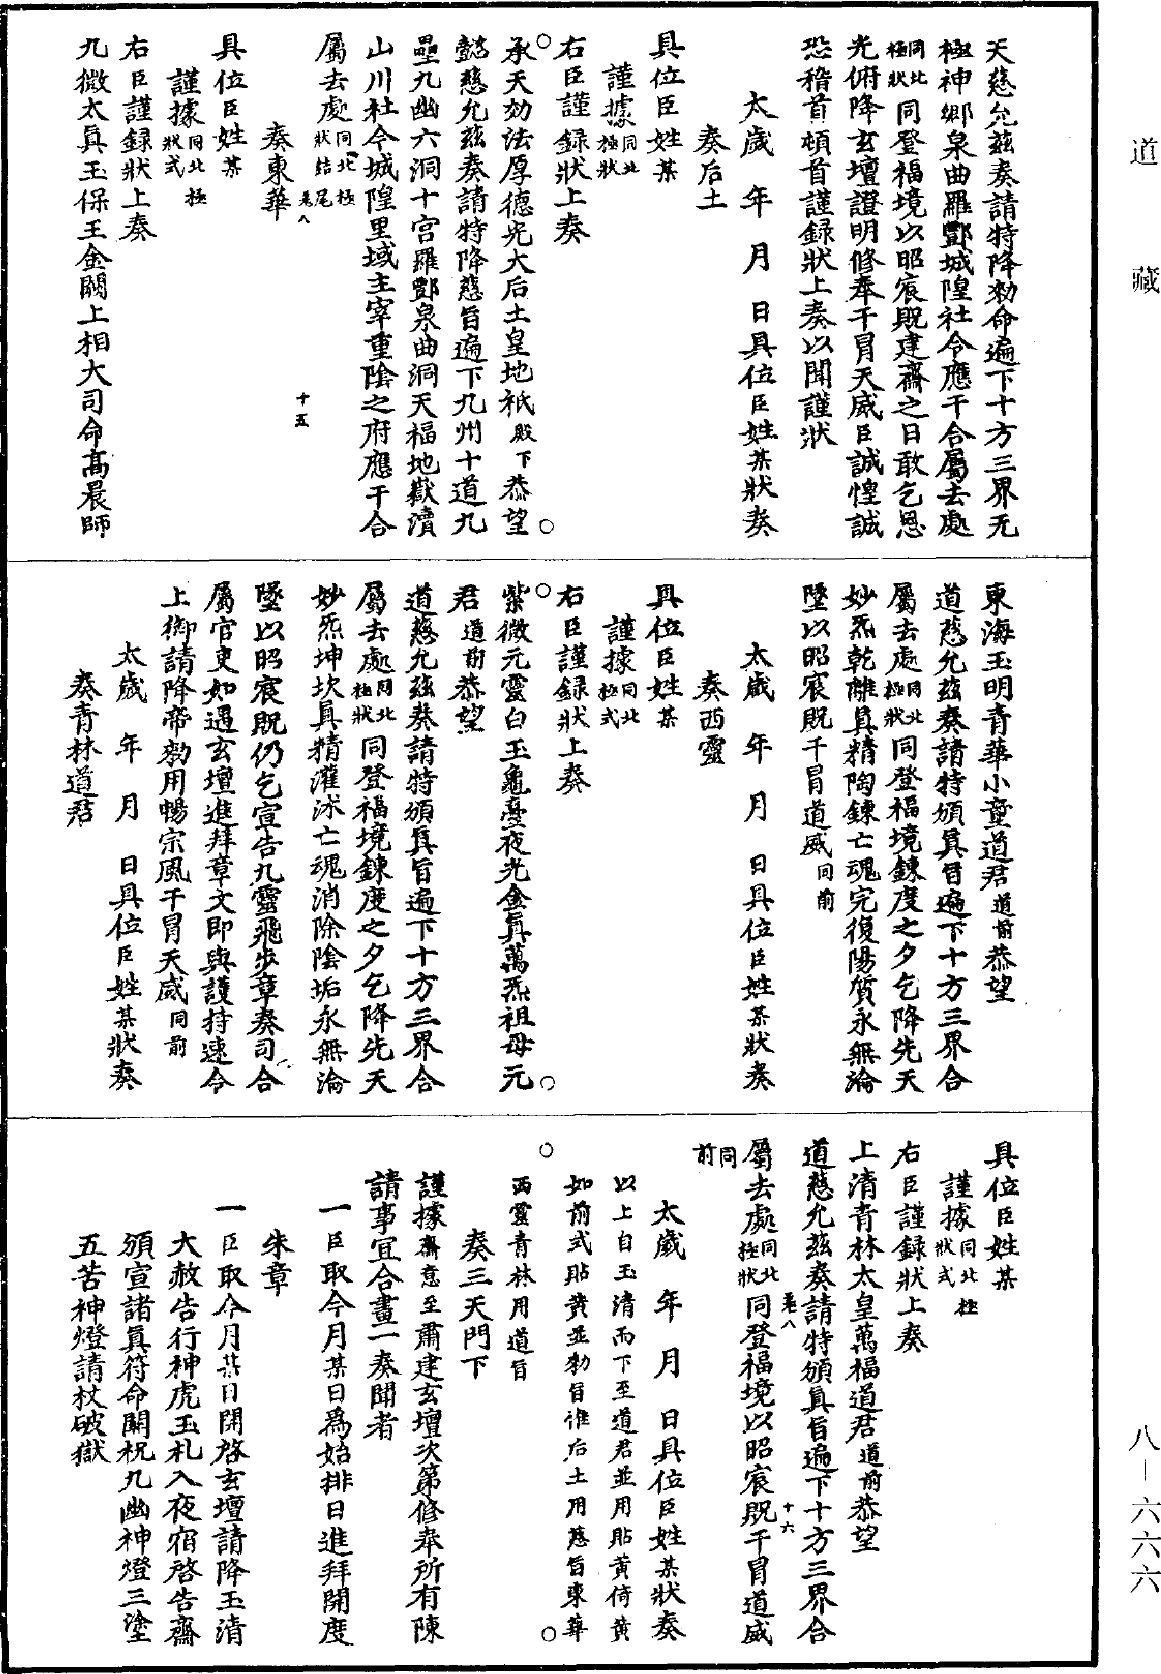 道藏
天慈允茲奏請特降勑命遍下十方三界无
極神鄉泉曲羅酆城隍社令應干合屬去處
同北極狀同登福境以昭宸貺建齋之日敢乞恩
光俯降玄壇證明修奉干冒天威臣誠惶誠
恐稽首頓首謹錄狀上奏以聞謹狀
太歲年月日具位臣姓某狀奏
奏后土
具位臣姓某
謹據同北極狀
右臣謹錄狀上奏
承天効法厚德光大后土皇地祇殿下恭望
懿慈允茲奏請特降慈旨遍下九州十道九
壘九幽六洞十宮羅酆泉曲洞天福地嶽瀆
山川社令城隍里域主宰重陰之府應干合
屬去處同北極狀結尾
卷八
十五
奏東華
具位臣姓某
謹據同北極狀式
右臣謹錄狀上奏
九微太真玉保王金闕上相大司命高晨師
東海玉明青華小童道君道前恭望
道慈允茲奏請特頒真旨遍下十方三界合
屬去處同北極狀同登福境鍊度之夕乞降先天
妙炁乾離真精陶鍊亡魂完復陽質永無淪
墜以昭宸貺干冒道威同前
太歲年月日具位臣姓某狀奏
奏西靈
具位臣姓某
謹據同北極式
右臣謹錄狀上奏
紫微元靈白玉龜臺夜光金真萬炁祖母元
君道前恭望
道慈允茲奏請特頒真旨遍下十方三界合
屬去處同北極狀同登福境鍊度之夕乞降先天
妙炁坤坎真精灌沐亡魂消除陰垢永無淪
墜以昭宸貺仍乞宣告九靈飛步章奏司合
屬官吏如遇玄壇進拜章文即與護持速令
上御請降帝勑用暢宗風干冒天威同前
太歲年月日具位臣姓某狀奏
奏青林道君
具位臣姓某
謹據同北極狀式
右臣謹錄狀上奏
上清青林太皇萬福道君道前恭望
道慈允茲奏請特頒真旨遍下十方三界合
卷八
十六
屬去處同北極狀同登福境以昭宸貺干冒道威
同前
太歲年月日具位臣姓某狀奏
以上自玉清而下至道君並用貼黃倚黃
如前式貼黃並勑旨惟后土用慈旨東華
西靈青林用道旨
奏三天門下
謹據齋意至肅建玄壇次第修奉所有陳
請事宜合畫一奏聞者
一臣取今月某日為始排日進拜開度
朱章
一臣取今月某日開啓玄壇請降玉清
大赦告行神虎玉札入夜宿啓告齋
頒宣諸真符命關祝九幽神燈三塗
五苦神燈請杖破獄
八—六六六